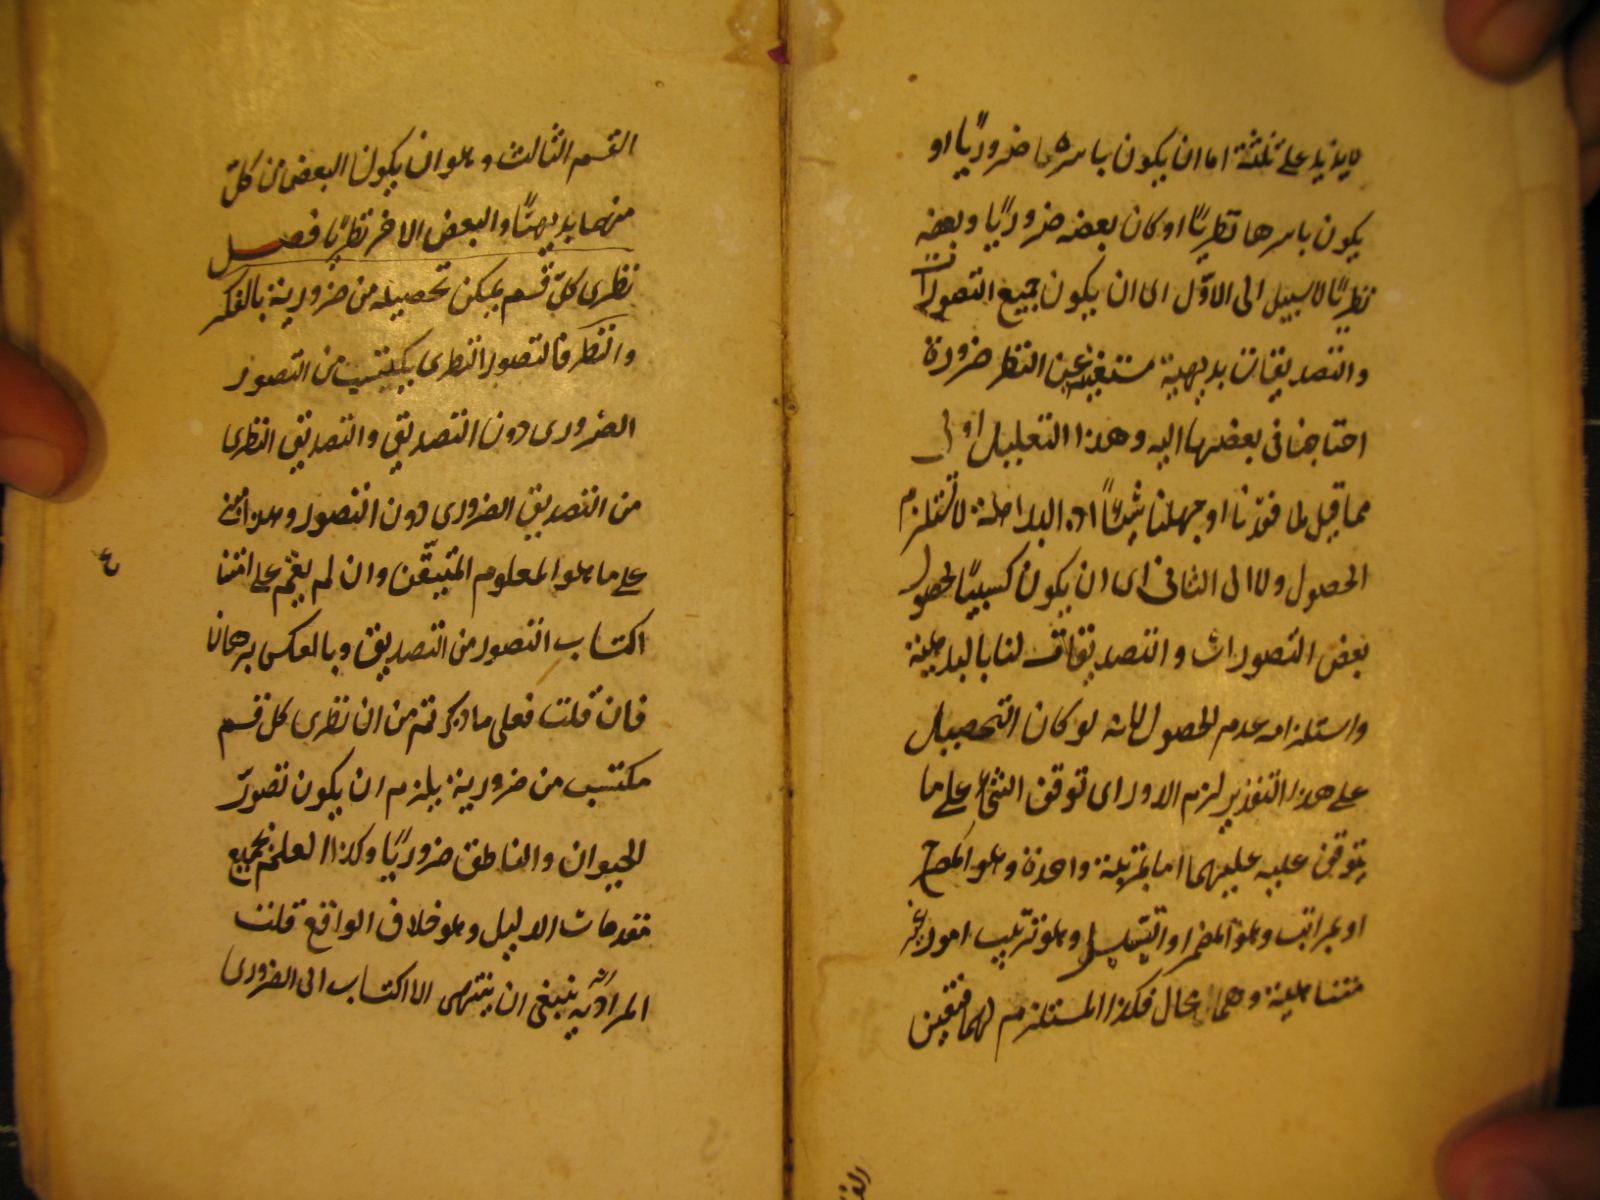 لا يزيد على ثلثة اما ان يكون باسرها ضروريًا او
يكون باسرها نظريًا او كان بعضه ضروريًا وبعضه
نظريًا لا سبيل الى الاوّل اى ان يكون جميع التصورات
والتصديقات بديهية مستغنية عن النظر ضرورة
احتياجنا فى بعضها اليه وهذا التعليل اولى
مما قيل لما فقدنا او جهلنا شيئًا اذ البداهة لا تستلزم
الحصول ولا الى الثانى اى ان يكون كسبيًا لحصول
بعض التصورات والتصديقات لنا بالبديهية
واستلزامه عدم الحصول لانه لو كان التحصيل
على هذا التقدير لزم الدور اى توقف الشئ على ما
يتوقف عليه عليهما اما بمرتبة واحدة وهو المصرح
او بمراتب وهو المضمر او التسلسل وهو ترتيب امور غير
متناهية وهما محال فكذا المستلزم لهما فتعين
القسم الثالث وهو ان يكون البعض من كلّ
منهما بديهيًا والبعض الاخر نظريًا فصل
نظرى كلّ قسم يمكن تحصيله من ضروريه بالفكر
والنظر فالتصور النظرى يكتسب من التصور
الضرورى دون التصديق والتصديق النظرى
من التصديق الضرورى دون التصور وهذا
على ما هو المعلوم المتيقّن وان لم يقم على امتناع
اكتساب التصور من التصديق وبالعكس برهان
فان قلت فعلى ما ذكرتم من ان نظرى كل قسم
مكتسب من ضروريه يلزم ان يكون تصوّر
الحيوان والناطق ضروريًا وكذا العلم بجميع
مقدمات الدليل وهو خلاف الواقع قلت
المراد انّه ينبغى ان ينتهى الاكتساب الى الضرورى